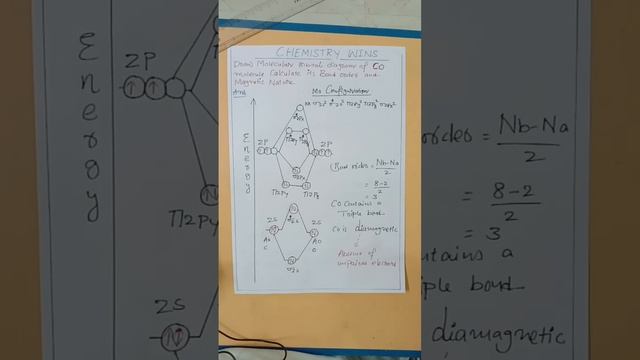 CHEMISTRY WINS
Draw Molecular orbital diagram of CO
molecule Calculate its Bond order and
Magnetic Nature.
Ans
Mo Configuration
Energy
2P
2P
Π2Py Π2Pz
σ2Px
Π2Py Π2Pz
Bond order = Nb-Na
2
= 8-2
2
= 3
CO Contains a
Triple bond
Co is diamagnetic
Absence of
unpaired electrons
2S
2S
AO
C
AO
O
σ2s
Energy
2P
Π2Py
2S
order = Nb-Na
2
= 8-2
2
= 3
ntains a
ple bond
diamagnetic